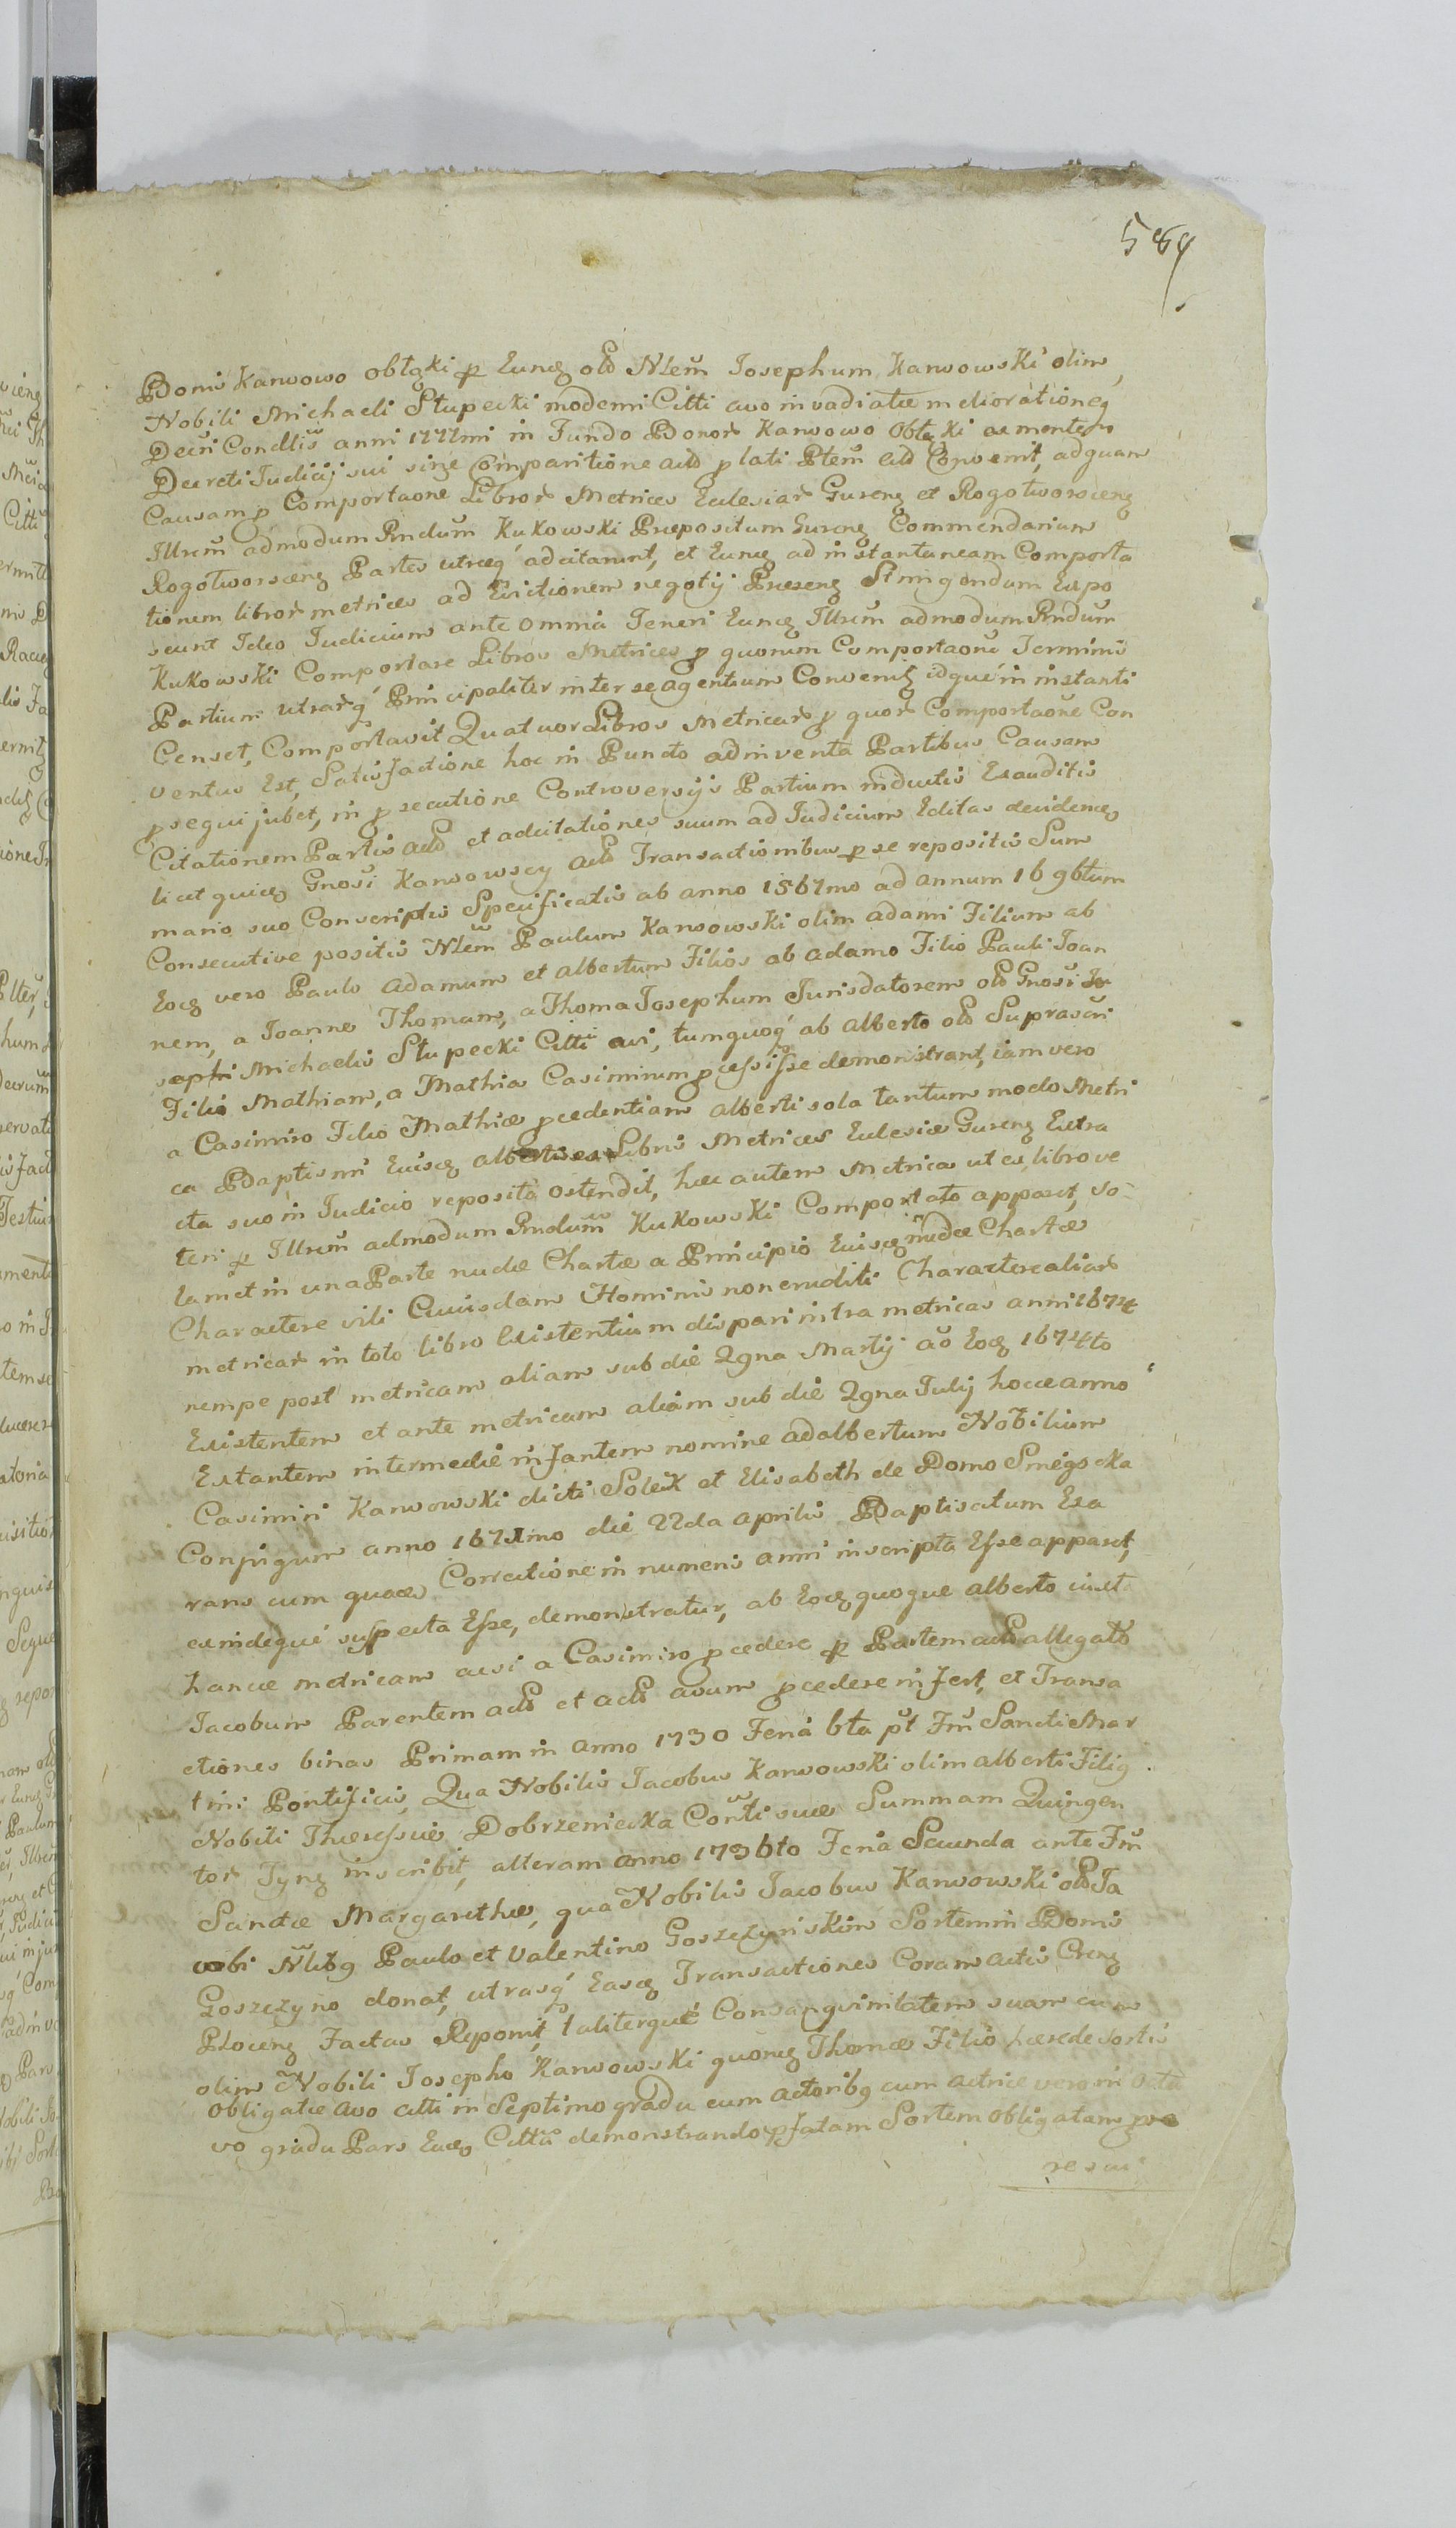 589
Bonis Karwowo obłęki ꝑ Eundꝫ olo Nlem̃ Josephum Karwowski olim
Nobili Michaeli Słupecki moderni Citti avo invadiatæ meliorationeꝫ
Decrĩ Condlis̃ anni 1777mi in Fundo Bonoꝝ Karwowo Obłęki ac mentem
Decreti Judicij sui sine Comparitione acto ꝑlati Ptem̃ acto Convenit, ad quam
Causam ꝑ Comportaone Libroꝝ Metrices Ecclesiaꝝ Gurenꝫ et Rogotworscenꝫ
Illrem̃ admodum Rndum̃ Kukowski Præpositum Gurenꝫ Commendarium
Rogotworscenꝫ Partes utræqꝫ adcitarunt, et Eundꝫ ad instantaneam Comporta
tionem libroꝝ metrices ad Evictionem negotij Præsenꝫ Stringendum Expo
scunt Ideo Judicium ante omnia Teneri Eundꝫ Illrem̃ admodum Rndum̃
Kukowski Comportare Libros Metrices ꝑ quorum Comportaone Termini
Partium utrarqꝫ Principaliter inter se agentium Convenit, idque in instanti
Censet, Comportavit Quatuor Libros Metricaꝝ ꝑ quoꝝ Comportaone Con
ventus Est, Satisfactione hoc in Puncto adinventa Partibus Causam
ꝑsequi jubet, in ꝑsecutione Controversijs Partium inductis Exauditis
Citationem Partis acto et adcitationes suum ad Judicium Editas decidendꝫ
licet quidꝫ Gnosi Karwowscy acto Transactionibus ꝑ se repositis Sum
mario suo Conscriptis Specificatis ab anno 1567mo ad annum 1696tum
Consecutive positis Nlem̃ Paulum Karwowski olim Adami Filium ab
Eodꝫ vero Paulo Adamum et Albertum Filios ab Adamo Filio Pauli Joan
nem, a Joanne Thomam, a Thoma Josephum Jurisdatorem olo Gnosi Jo
sephi Michaelis Słupecki Citti avi, tumquoqꝫ ab Alberto olo Suprascri
Filio Mathiam, a Mathia Casimirum ꝑcessisse demonstrant, iam vero
a Casimiro Filio Mathiæ ꝑcedentiam Alberti sola tantummodo Metri
ca Baptismi Eiusdꝫ Alberti ex Libris Metrices Ecclesiæ Gurenꝫ Extra
cta suo in Judicio reposita ostendit, hæc autem Metrica ut ex libro ve
teri ꝑ Illrem̃ admodum Rndum̃ Kukowski Comportato apparet, so
lamet in una Parte nudæ Chartæ a Principio Eiusdꝫ nudæ Chartæ
Charactere vili Cuiusdam Hominis non eruditi Charactere aliaꝝ
metricaꝝ in toto libro Existentium dispari intra metricas anni 1674
nempe post metricam aliam sub die 29na Martij aõ Eodꝫ 1674to
Existentem et ante metricam aliam sub die 29na Julij hocce anno
Extantem intermedie infantem nomine Adalbertum Nobilium
Casimiri Karwowski dicti Solek et Elisabeth de Domo Smiegocka
Conjugum anno 1671mo die 22da Aprilis Baptisatum Exa
rans cum quadꝫ Correctione in numeris anni inscripta Esse apparet,
exindeque suspecta Esse, demonstratur, ab Eodꝫ quoque Alberto juxt
hancce metricam acsi a Casimiro ꝑcedere ꝑ Partem acto allegato
Jacobum Parentem acto et acto avum ꝑcedere infert, et Transa
ctiones binas Primam in anno 1730 Feria 6ta pt Fm̃ Sancti Mar
tini Pontificis, Qua Nobilis Jacobus Karwowski olim Alberti Filiꝫ
Nobili Theressiæ Dobrzeniecka Conti suæ Summam Quingen
toꝝ Tynꝫ inscribit, alteram anno 1736to Feria Secunda ante Fm̃
Sanctæ Margarethæ, qua Nobilis Jacobus Karwowski olo Ja
cobi Nlibꝫ Paulo et Valentino Goszczynskim Sortem in Bonis
Goszczyno donat, utrasqꝫ Easdꝫ Transactiones Coram Actis Crenꝫ
Plocenꝫ Factas Reponit, taliterque Consangvinitatem suam cum
olim Nobili Josepho Karwowski quondꝫ Thomæ Filio hærede sortis
Obligatæ Avo citti in Septimo gradu cum Actoribꝫ cum Actrice vero in octa
vo gradu Pars Eadꝫ Citta demonstrando ꝑfatam Sortem Obligatam
resui